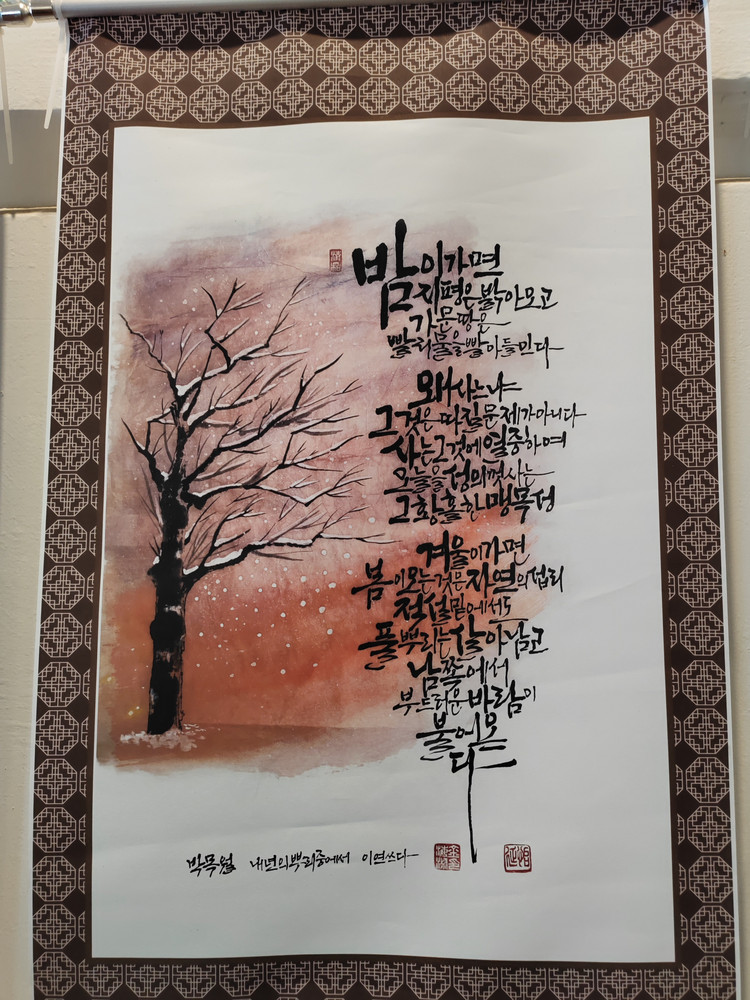 밤이가면
지평은밝아오고
가문땅은
빨리물을빨아들인다
왜사느냐
그것은따질문제가아니다
사는그것에열중하여
오늘을성의껏사는
그황홀한맹목성
겨울이가면
봄이오는것은자연의섭리
적설밑에서도
풀뿌리는살아남고
남쪽에서
부드러운바람이
불어온
다
박목월 내년의뿌리중에서 이연쓰다